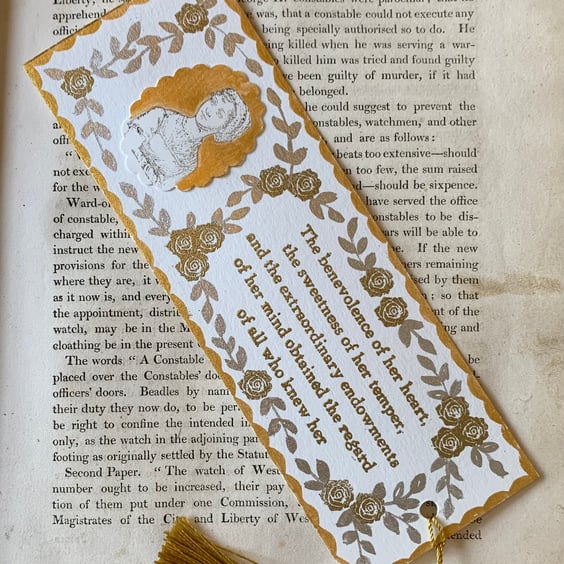 Liberty, he is constables were parochial, that
was, that a constable could not execute any
being specially authorised so to do. He
being killed when he was serving a war-
him was tried and found guilty
been guilty of murder, if it had
belonged.
he could suggest to prevent the
constables, watchmen, and other
and are as follows:
beats too extensive—should
too few, the sum raised
—should be sixpence.
have served the office
constables to be dis-
will be able to
If the new
remaining
used by them
; so that
ent of the
and
not
for the w
Ward-
of constable,
charged within
instruct the new
provisions for the
where they are, it
as it now is, and every
the appointment, distri
watch, may be in the M
cloathing be in the present
The words "A Constable
placed over the Constables' do
officers' doors. Beadles by nam
their duty they now do, to be per
be right to confine the intended in
only, as the watch in the adjoining par
footing as originally settled by the Statut
Second Paper. "The watch of West
number ought to be increased, their pay
tion of them put under one Commission,
Magistrates of the City and Liberty of Wes
The benevolence of her heart,
the sweetness of her temper,
and the extraordinary endowments
of her mind obtained the regard
of all who knew her